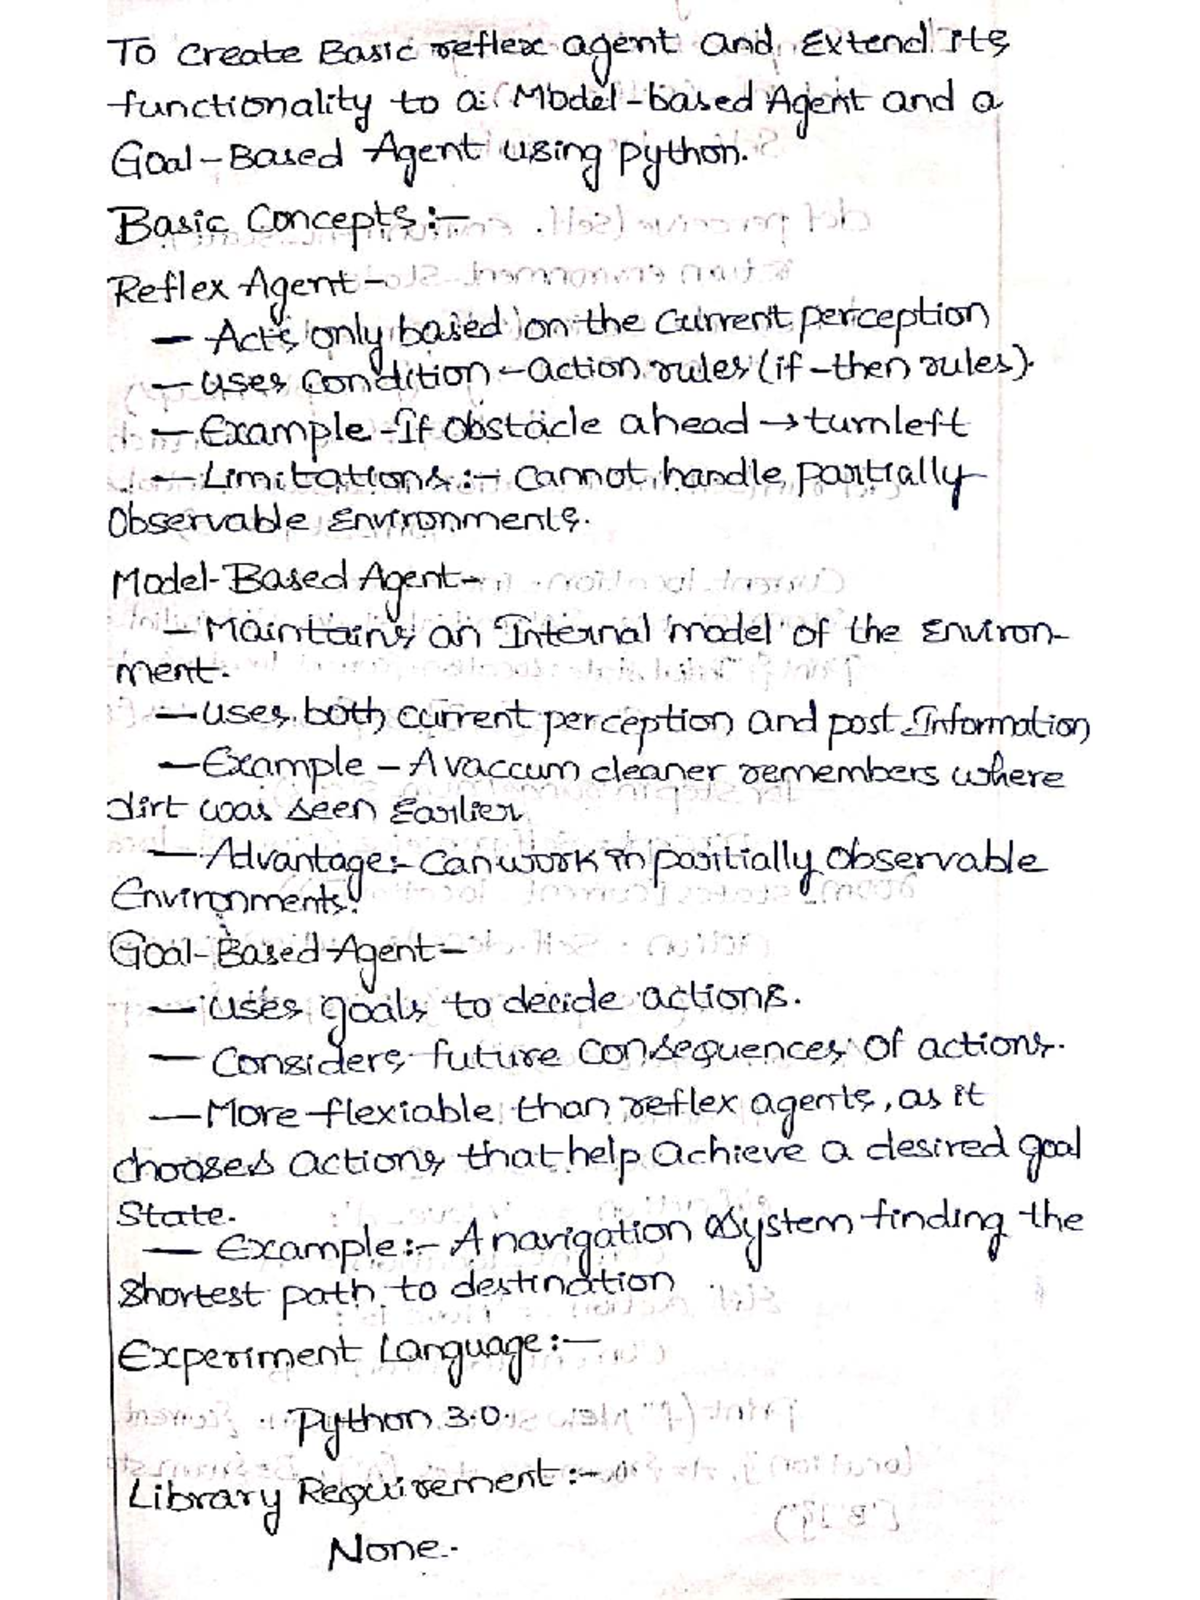 To Create Basic reflex agent and Extend Its
functionality to a Model-based Agent and a
Goal-Based Agent using python.
Basic Concepts:-
Reflex Agent-
- Acts only based on the current perception
- uses Condition-Action rules (if-then rules).
- Example-If obstacle ahead → turn left
- Limitations:- Cannot handle partially
Observable Environments.
Model-Based Agent-
- Maintains an Internal model of the Environ-
ment.
- uses both current perception and post Information
- Example - A vaccum cleaner remembers where
dirt was seen Earlier
- Advantage:- Can work in partially observable
Environments.
Goal-Based Agent-
- uses goals to decide actions.
- Considers future consequences of actions.
- More flexiable than reflex agents, as it
chooses actions that help achieve a desired goal
State.
- Example:- A navigation System finding the
Shortest path to destination
Experiment Language:-
Python 3.0.
Library Requirement:-
None.